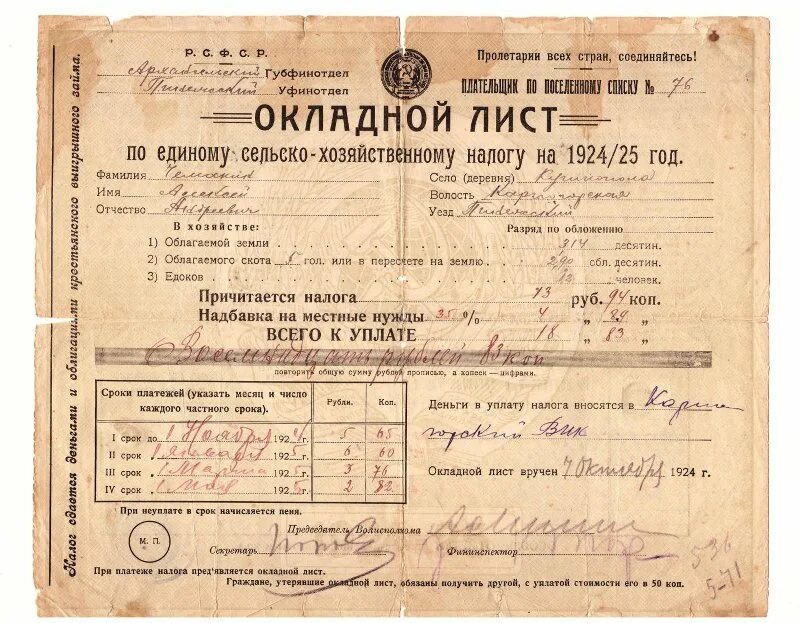 Налог сдается деньгами и облигациями крестьянского выигрышного займа.
Р. С. Ф. С. Р.
Архангельский Губфинотдел
Пинежский Уфинотдел
Пролетарии всех стран, соединяйтесь!
ПЛАТЕЛЬЩИК ПО ПОСЕЛЕННОМУ СПИСКУ № 76
ОКЛАДНОЙ ЛИСТ
по единому сельско-хозяйственному налогу на 1924/25 год.
Фамилия
Имя Алексей
Отчество Андреевич
Село (деревня)
Волость Карпогорская
Уезд Пинежский
В хозяйстве:
Разряд по обложению
1) Облагаемой земли 314 десятин.
2) Облагаемого скота 5 гол. или в пересчете на землю 2,90 обл. десятин.
3) Едоков 12 человек.
Причитается налога 73 руб. 94 коп.
Надбавка на местные нужды 35 % 4 „ 89 „
ВСЕГО К УПЛАТЕ 18 „ 83 „
Восемнадцать рублей 83 коп
повторить общую сумму рублей прописью, а копеек — цифрами.
Сроки платежей (указать месяц и число каждого частного срока).
Рубли. Коп.
I срок до 1 Ноября 1924 г. 5 65
II срок „ 1 января 1925 г. 6 60
III срок „ 1 Марта 1925 г. 3 76
IV срок „ 1 Мая 1925 г. 2 82
Деньги в уплату налога вносятся в Карпо
горский Вик
Окладной лист вручен 7 Октября 1924 г.
При неуплате в срок начисляется пеня.
М. П.
Председатель Волисполкома
Секретарь
Фининспектор
При платеже налога предъявляется окладной лист.
Граждане, утерявшие окладной лист, обязаны получить другой, с уплатой стоимости его в 50 коп.
536
5-71